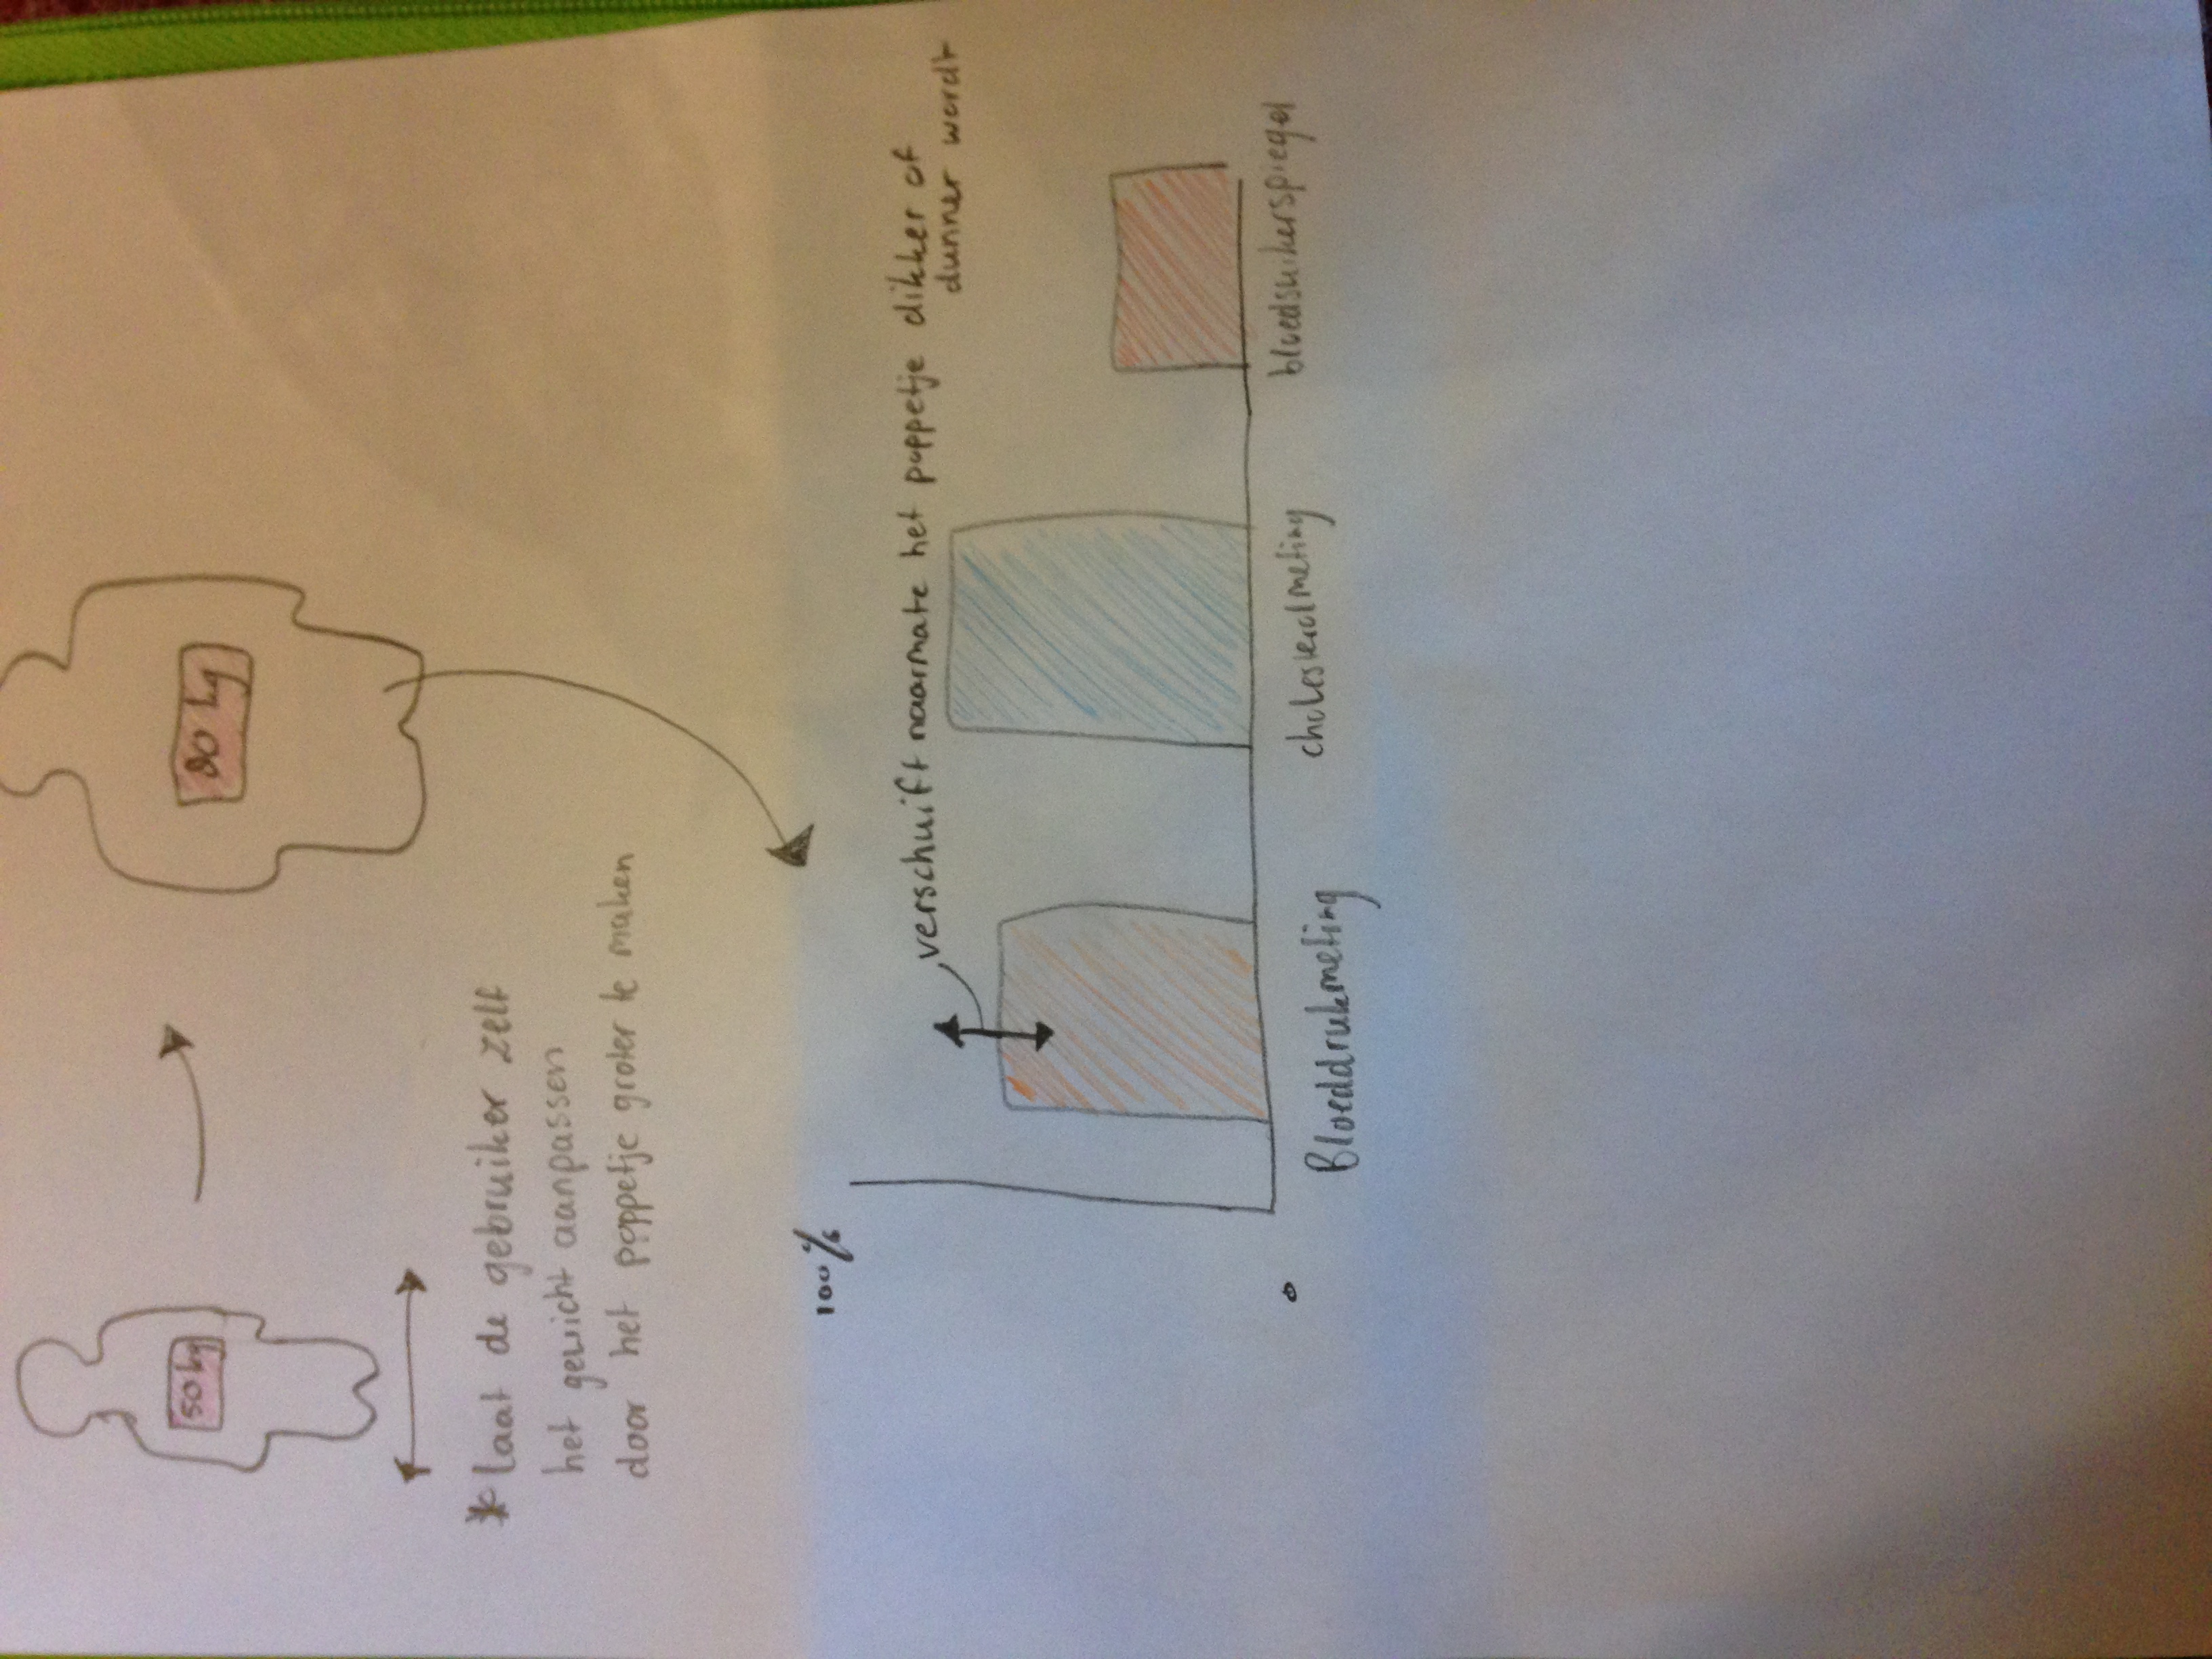 50 kg
80 kg
* laat de gebruiker zelf
het gewicht aanpassen
door het poppetje groter te maken
100%
verschuift naarmate het poppetje dikker of
dunner wordt
0
Bloeddrukmeting
cholesterolmeting
bloedsuikerspiegel